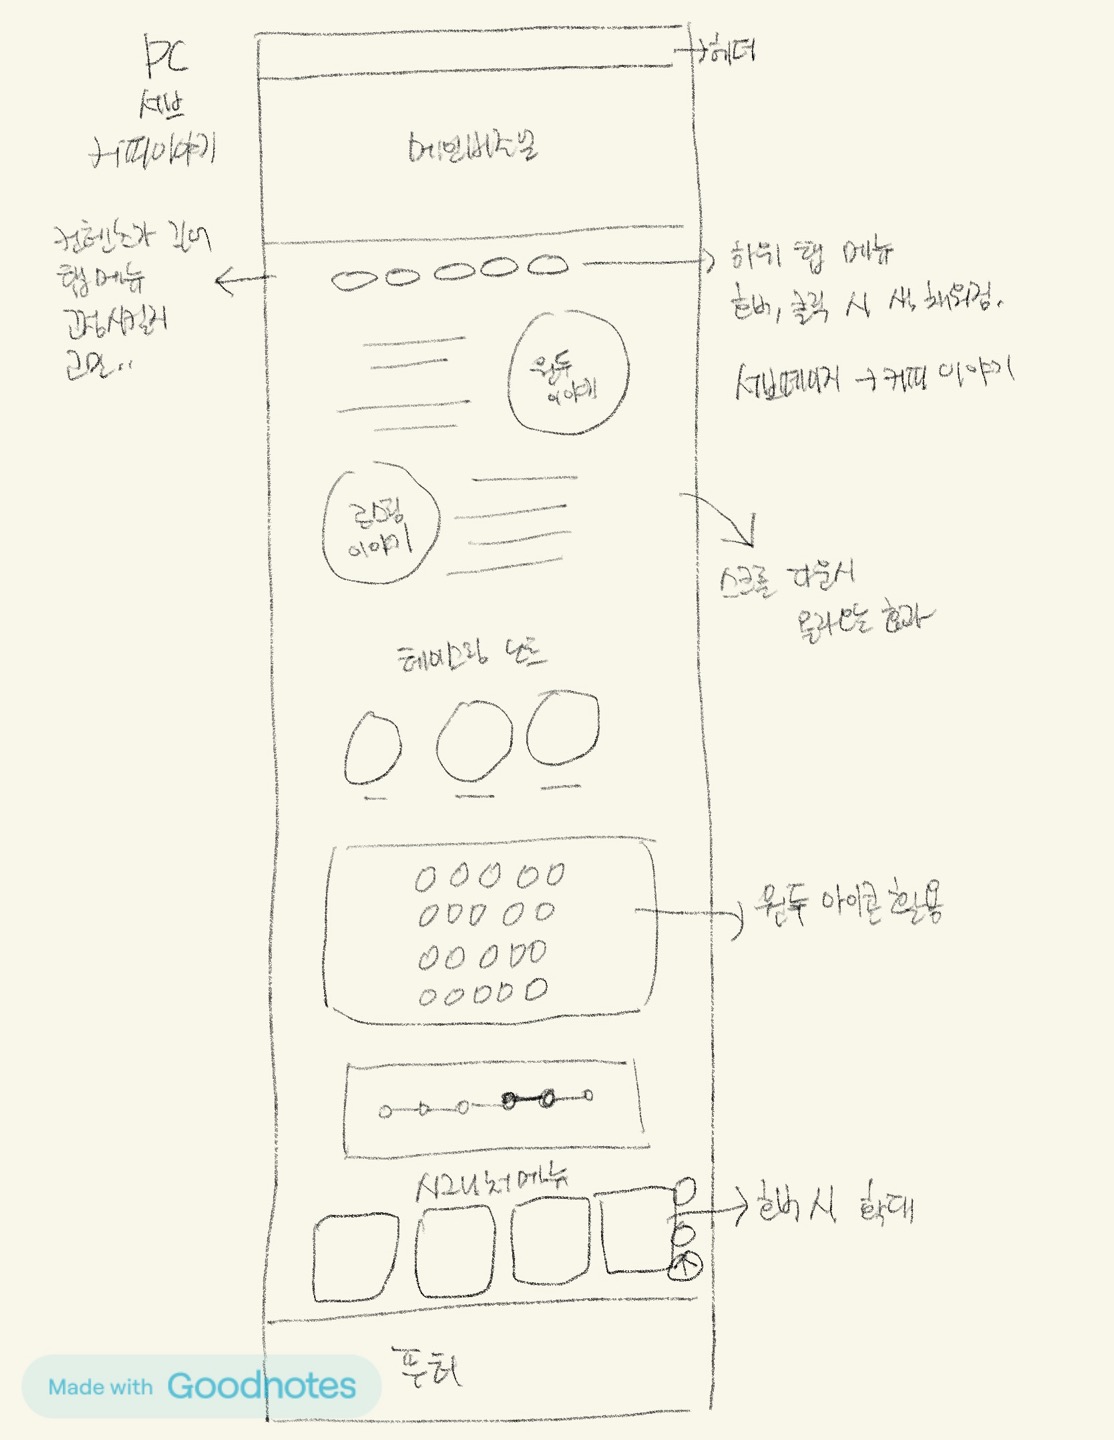 PC
서브
커피이야기
헤더
메인비주얼
컨텐츠가 길어
탭메뉴
고정시킬지
고민..
하위 탭 메뉴
호버, 클릭 시 색 채워짐.
서브페이지 → 커피 이야기
원두
이야기
로스팅
이야기
스크롤 다운시
올라오는 효과
테이스팅 노트
원두 아이콘 활용
시그니처메뉴
호버 시 확대
푸터
Made with Goodnotes